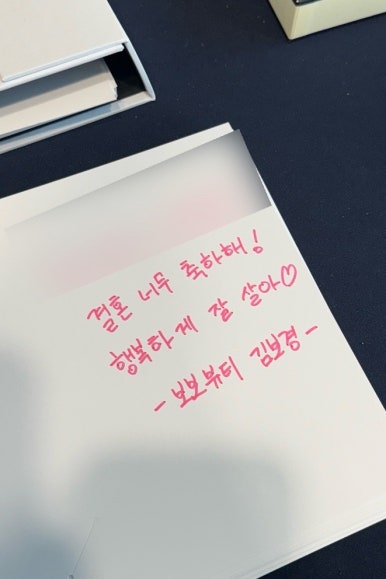 결혼 너무 축하해!
행복하게 잘 살아♡
- 보보뷰티 김보경 -